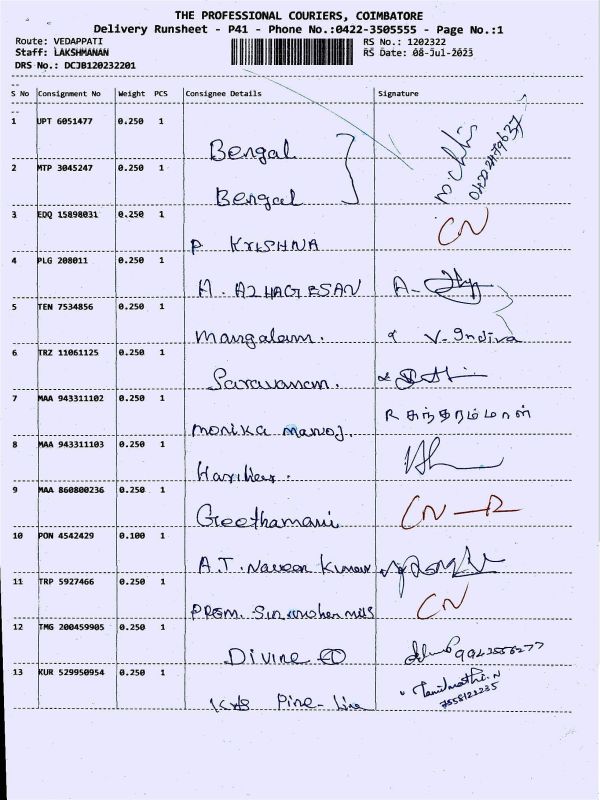 THE PROFESSIONAL COURIERS, COIMBATORE
Delivery Runsheet - P41 - Phone No.:0422-3505555 - Page No.:1
Route: VEDAPPATI
Staff: LAKSHMANAN
DRS No.: DCJB120232201
RS No.: 1202322
RS Date: 08-Jul-2023
S No Consignment No Weight PCS Consignee Details Signature
1 UPT 6051477 0.250 1
Bengal
2 MTP 3045247 0.250 1
Bengal
3 EDQ 15898031 0.250 1 CN
P KRISHNA
4 PLG 208011 0.250 1
A. AZHAGESAN A-
5 TEN 7534856 0.250 1
Mangalam. V-Indira
6 TRZ 11061125 0.250 1
Saravanan.
7 MAA 943311102 0.250 1 R சுந்தரம்மாள்
Monika Manoj.
8 MAA 943311103 0.250 1
Harihar.
9 MAA 860800236 0.250 1 CN-R
Geethamani
10 PON 4542429 0.100 1
A.T. Naveen Kumar
11 TRP 5927466 0.250 1 CN
12 TMG 200459905 0.250 1
Divine 9943556277
13 KUR 529950954 0.250 1 Tamilmathi.N
7558122235
Pine-Line